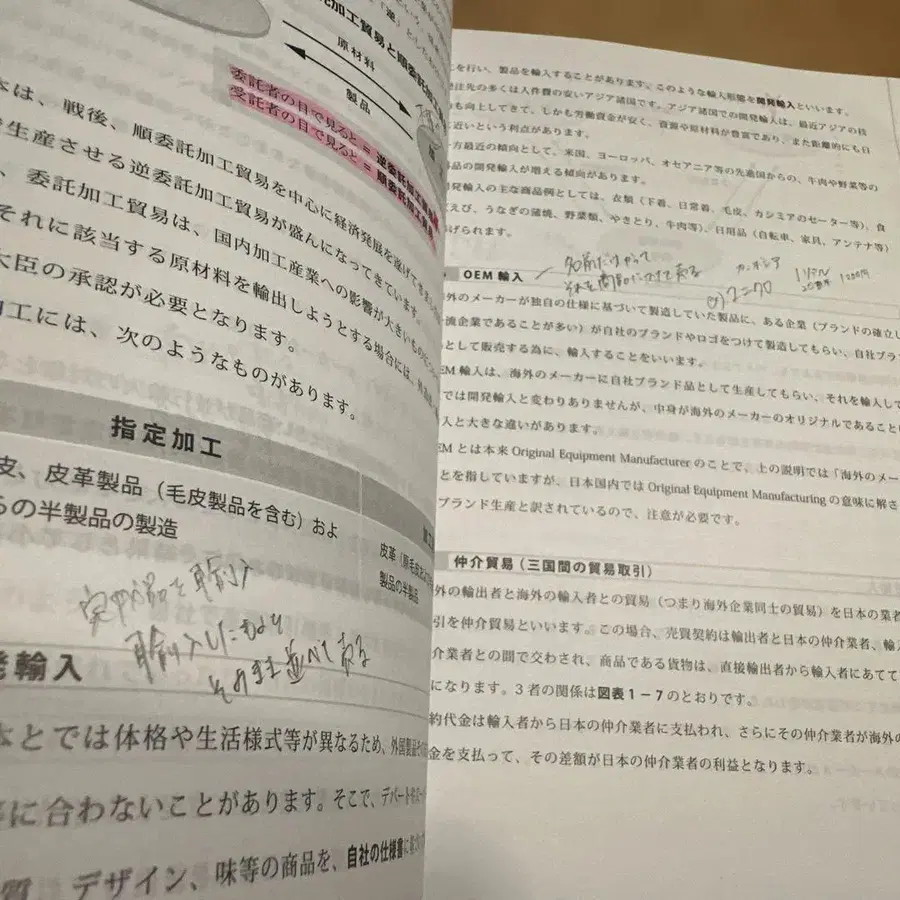 原材料
製品
委託者の目で見ると＝逆委託加工
受託者の目で見ると＝順委託加工
本は、戦後、順委託加工貿易を中心に経済発展を遂げてきま
生産させる逆委託加工貿易が盛んになってきています。
、委託加工貿易は、国内加工産業への影響が大きいもの
それに該当する原材料を輸出しようとする場合には、
大臣の承認が必要となります。
加工には、次のようなものがあります。
指定加工
皮、皮革製品（毛皮製品を含む）およ
らの半製品の製造
皮革（原毛皮
製品の半製品
輸入したものを
そのまま並べて売る
発輸入
本とでは体格や生活様式等が異なるため、外国製品
に合わないことがあります。そこで、デパート
質、デザイン、味等の商品を、自社の仕様書に
を行い、製品を輸入することがあります。このような輸入形態を開発輸入といいます。
発注先の多くは人件費の安いアジア諸国です。アジア諸国での開発輸入は、最近アジアの技
も向上してきて、しかも労働賃金が安く、資源や原材料が豊富であり、また距離的にも日
近いという利点があります。
方最近の傾向として、米国、ヨーロッパ、オセアニア等の先進国からの、牛肉や野菜等の
品の開発輸入が増える傾向があります。
発輸入の主な商品例としては、衣類（下着、日常着、毛皮、カシミアのセーター等）、食
えび、うなぎの蒲焼、野菜類、やきとり、牛肉等）、日用品（自転車、家具、アンテナ等）
げられます。
ユニクロ
OEM 輸入
海外のメーカーが独自の仕様に基づいて製造していた製品に、ある企業（ブランドの確立し
流企業であることが多い）が自社のブランドやロゴをつけて製造してもらい、自社ブラ
として販売する為に、輸入することをいいます。
EM 輸入は、海外のメーカーに自社ブランド品として生産してもらい、それを輸入して
では開発輸入と変わりありませんが、中身が海外のメーカーのオリジナルであること
入と大きな違いがあります。
EM とは本来 Original Equipment Manufacturer のことで、上の説明では「海外のメー
とを指していますが、日本国内では Original Equipment Manufacturing の意味に解さ
ブランド生産と訳されているので、注意が必要です。
仲介貿易（三国間の貿易取引）
外の輸出者と海外の輸入者との貿易（つまり海外企業同士の貿易）を日本の業者
引を仲介貿易といいます。この場合、売買契約は輸出者と日本の仲介業者、輸
介業者との間で交わされ、商品である貨物は、直接輸出者から輸入者にあてて
になります。3者の関係は図表1－7のとおりです。
約代金は輸入者から日本の仲介業者に支払われ、さらにその仲介業者が海外の
金を支払って、その差額が日本の仲介業者の利益となります。